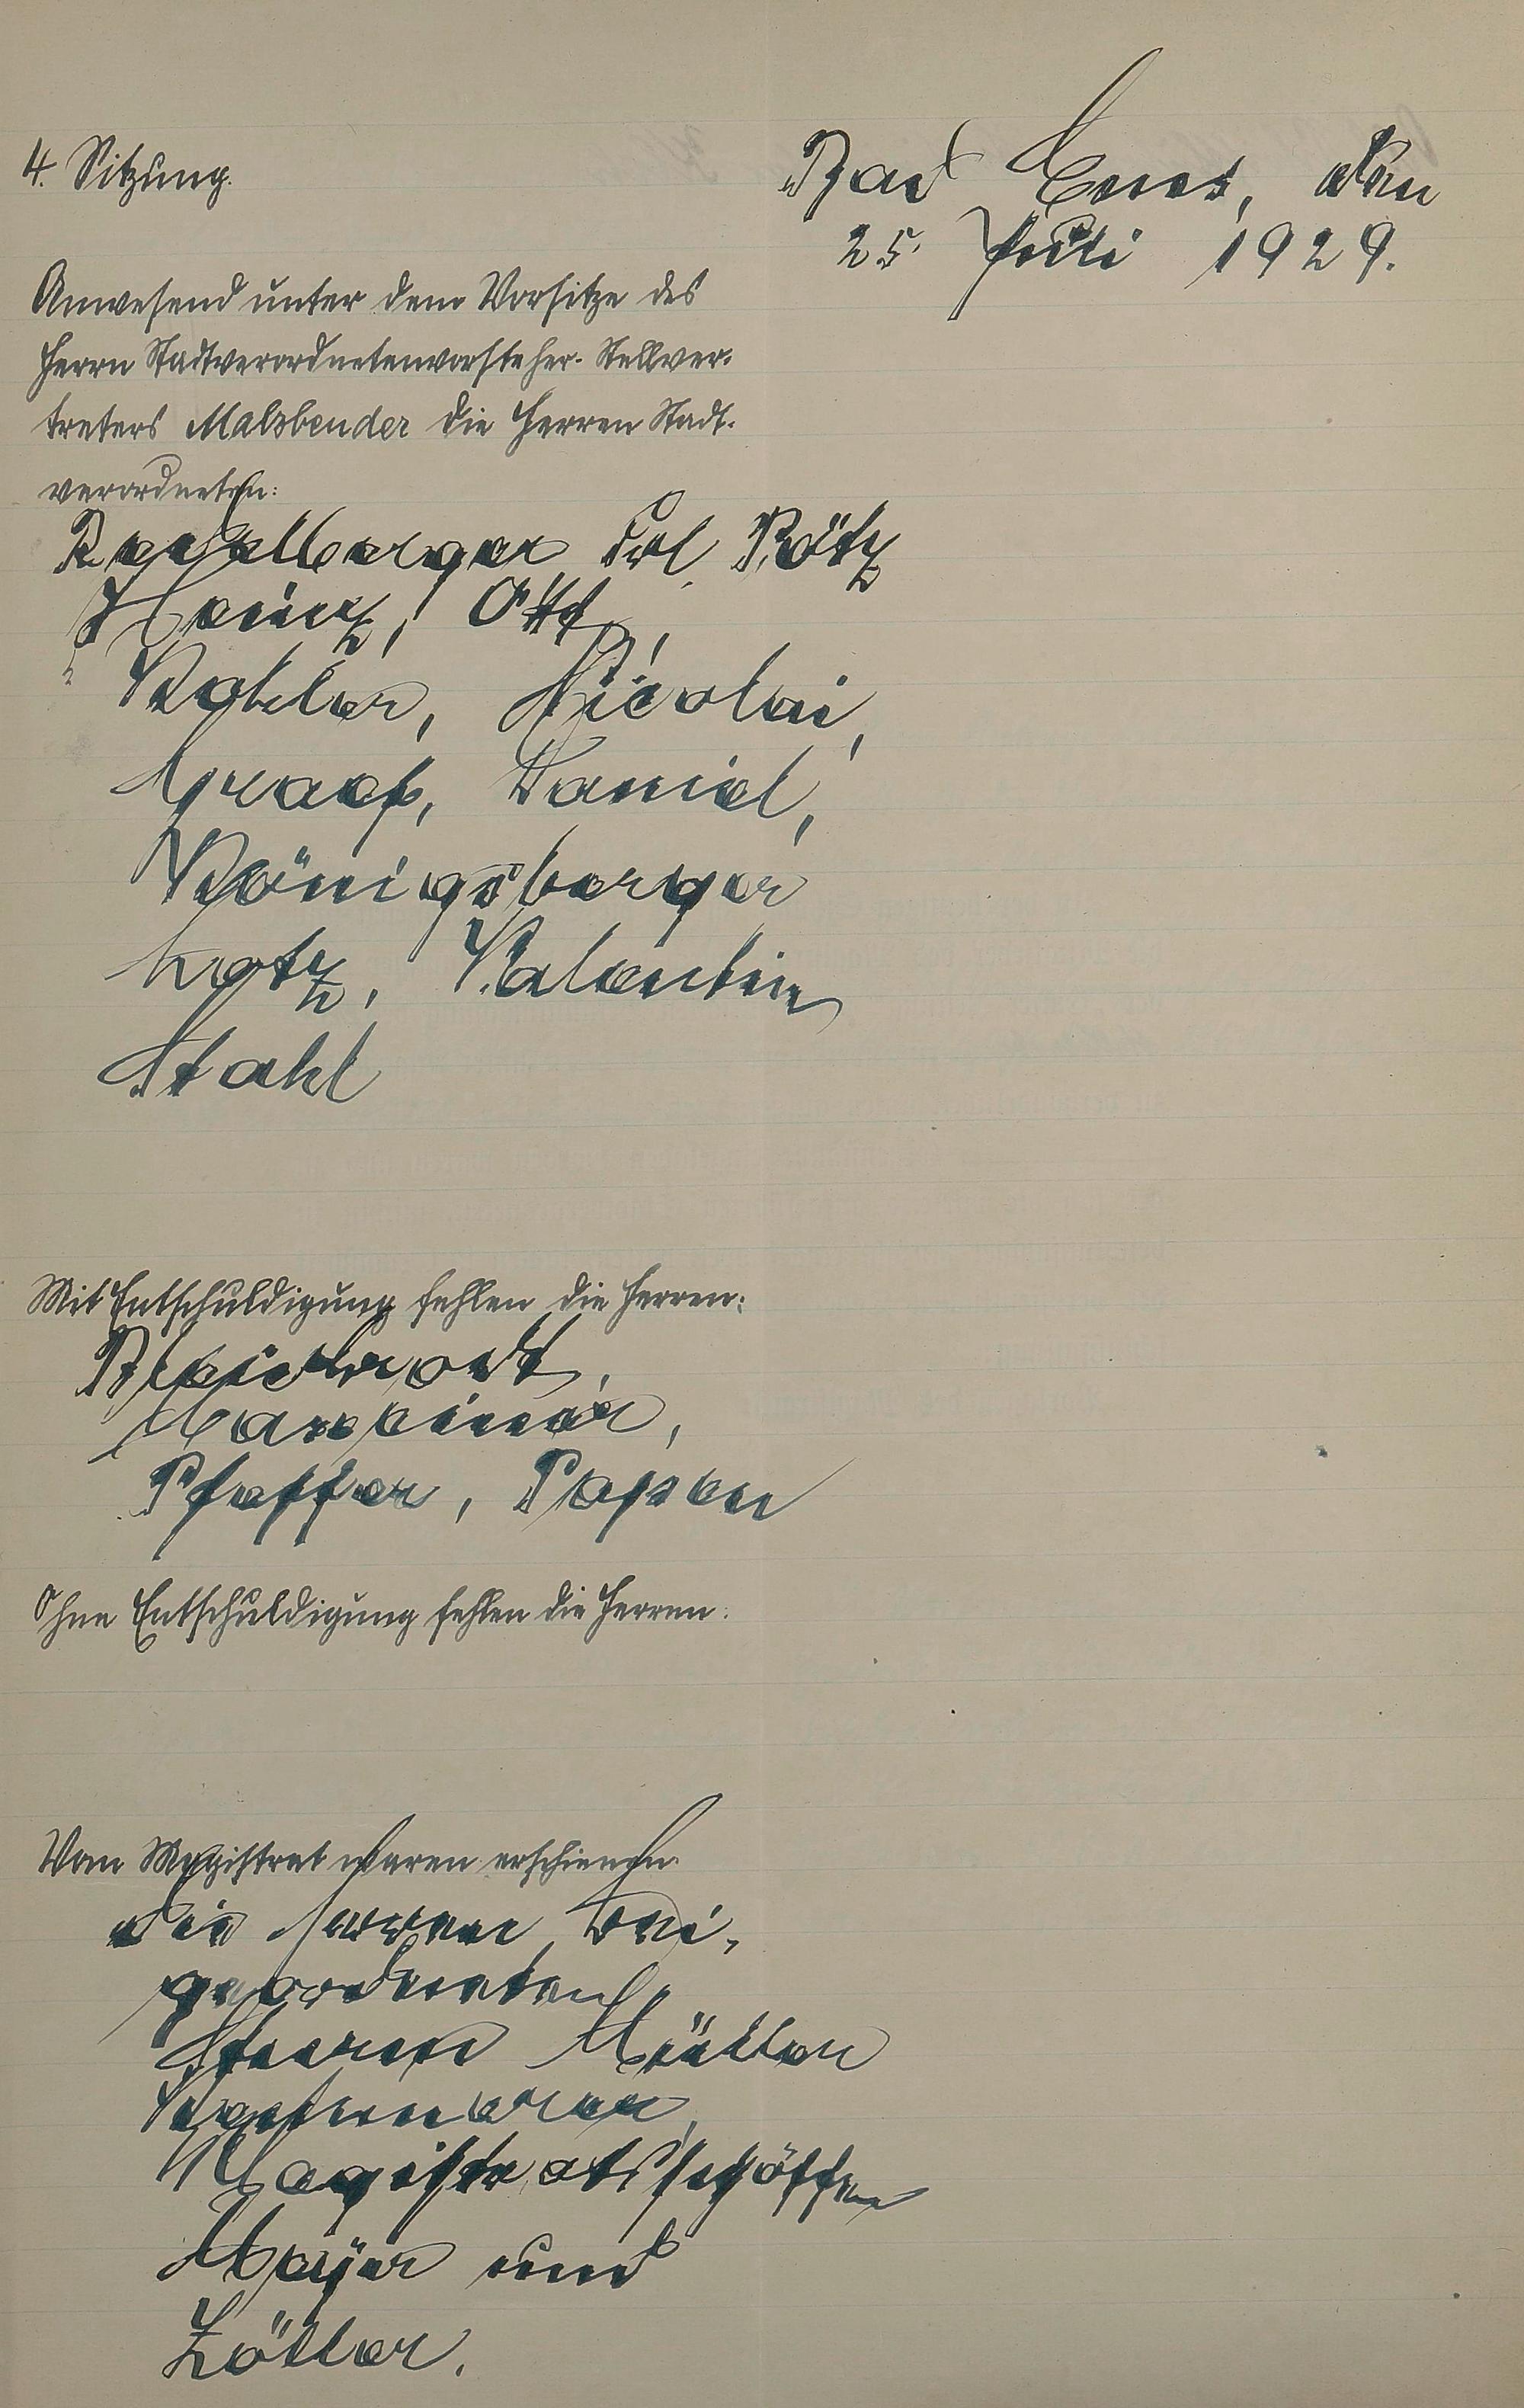 4. Sitzung.
Bad Ems, den
25. Juli 1929.
Anwesend unter dem Vorsitze des
Herrn Stadtverordnetenvorsteher-Stellver-
treters Malsbender die Herren Stadt-
verordneten:
Frl. Bötz
Heintz, Ott,
Kahler, Nicolai,
Graef, Daniel,
Königsberger
Lotz, Valentin
Stahl
Mit Entschuldigung fehlen die Herren:
Pfeffer, Papen
Ohne Entschuldigung fehlen die Herren:
Vom Magistrat waren erschienen:
die Herren Bei-
geordneten
Müller
Magistratsschöffen
Mayer und
Zöller.